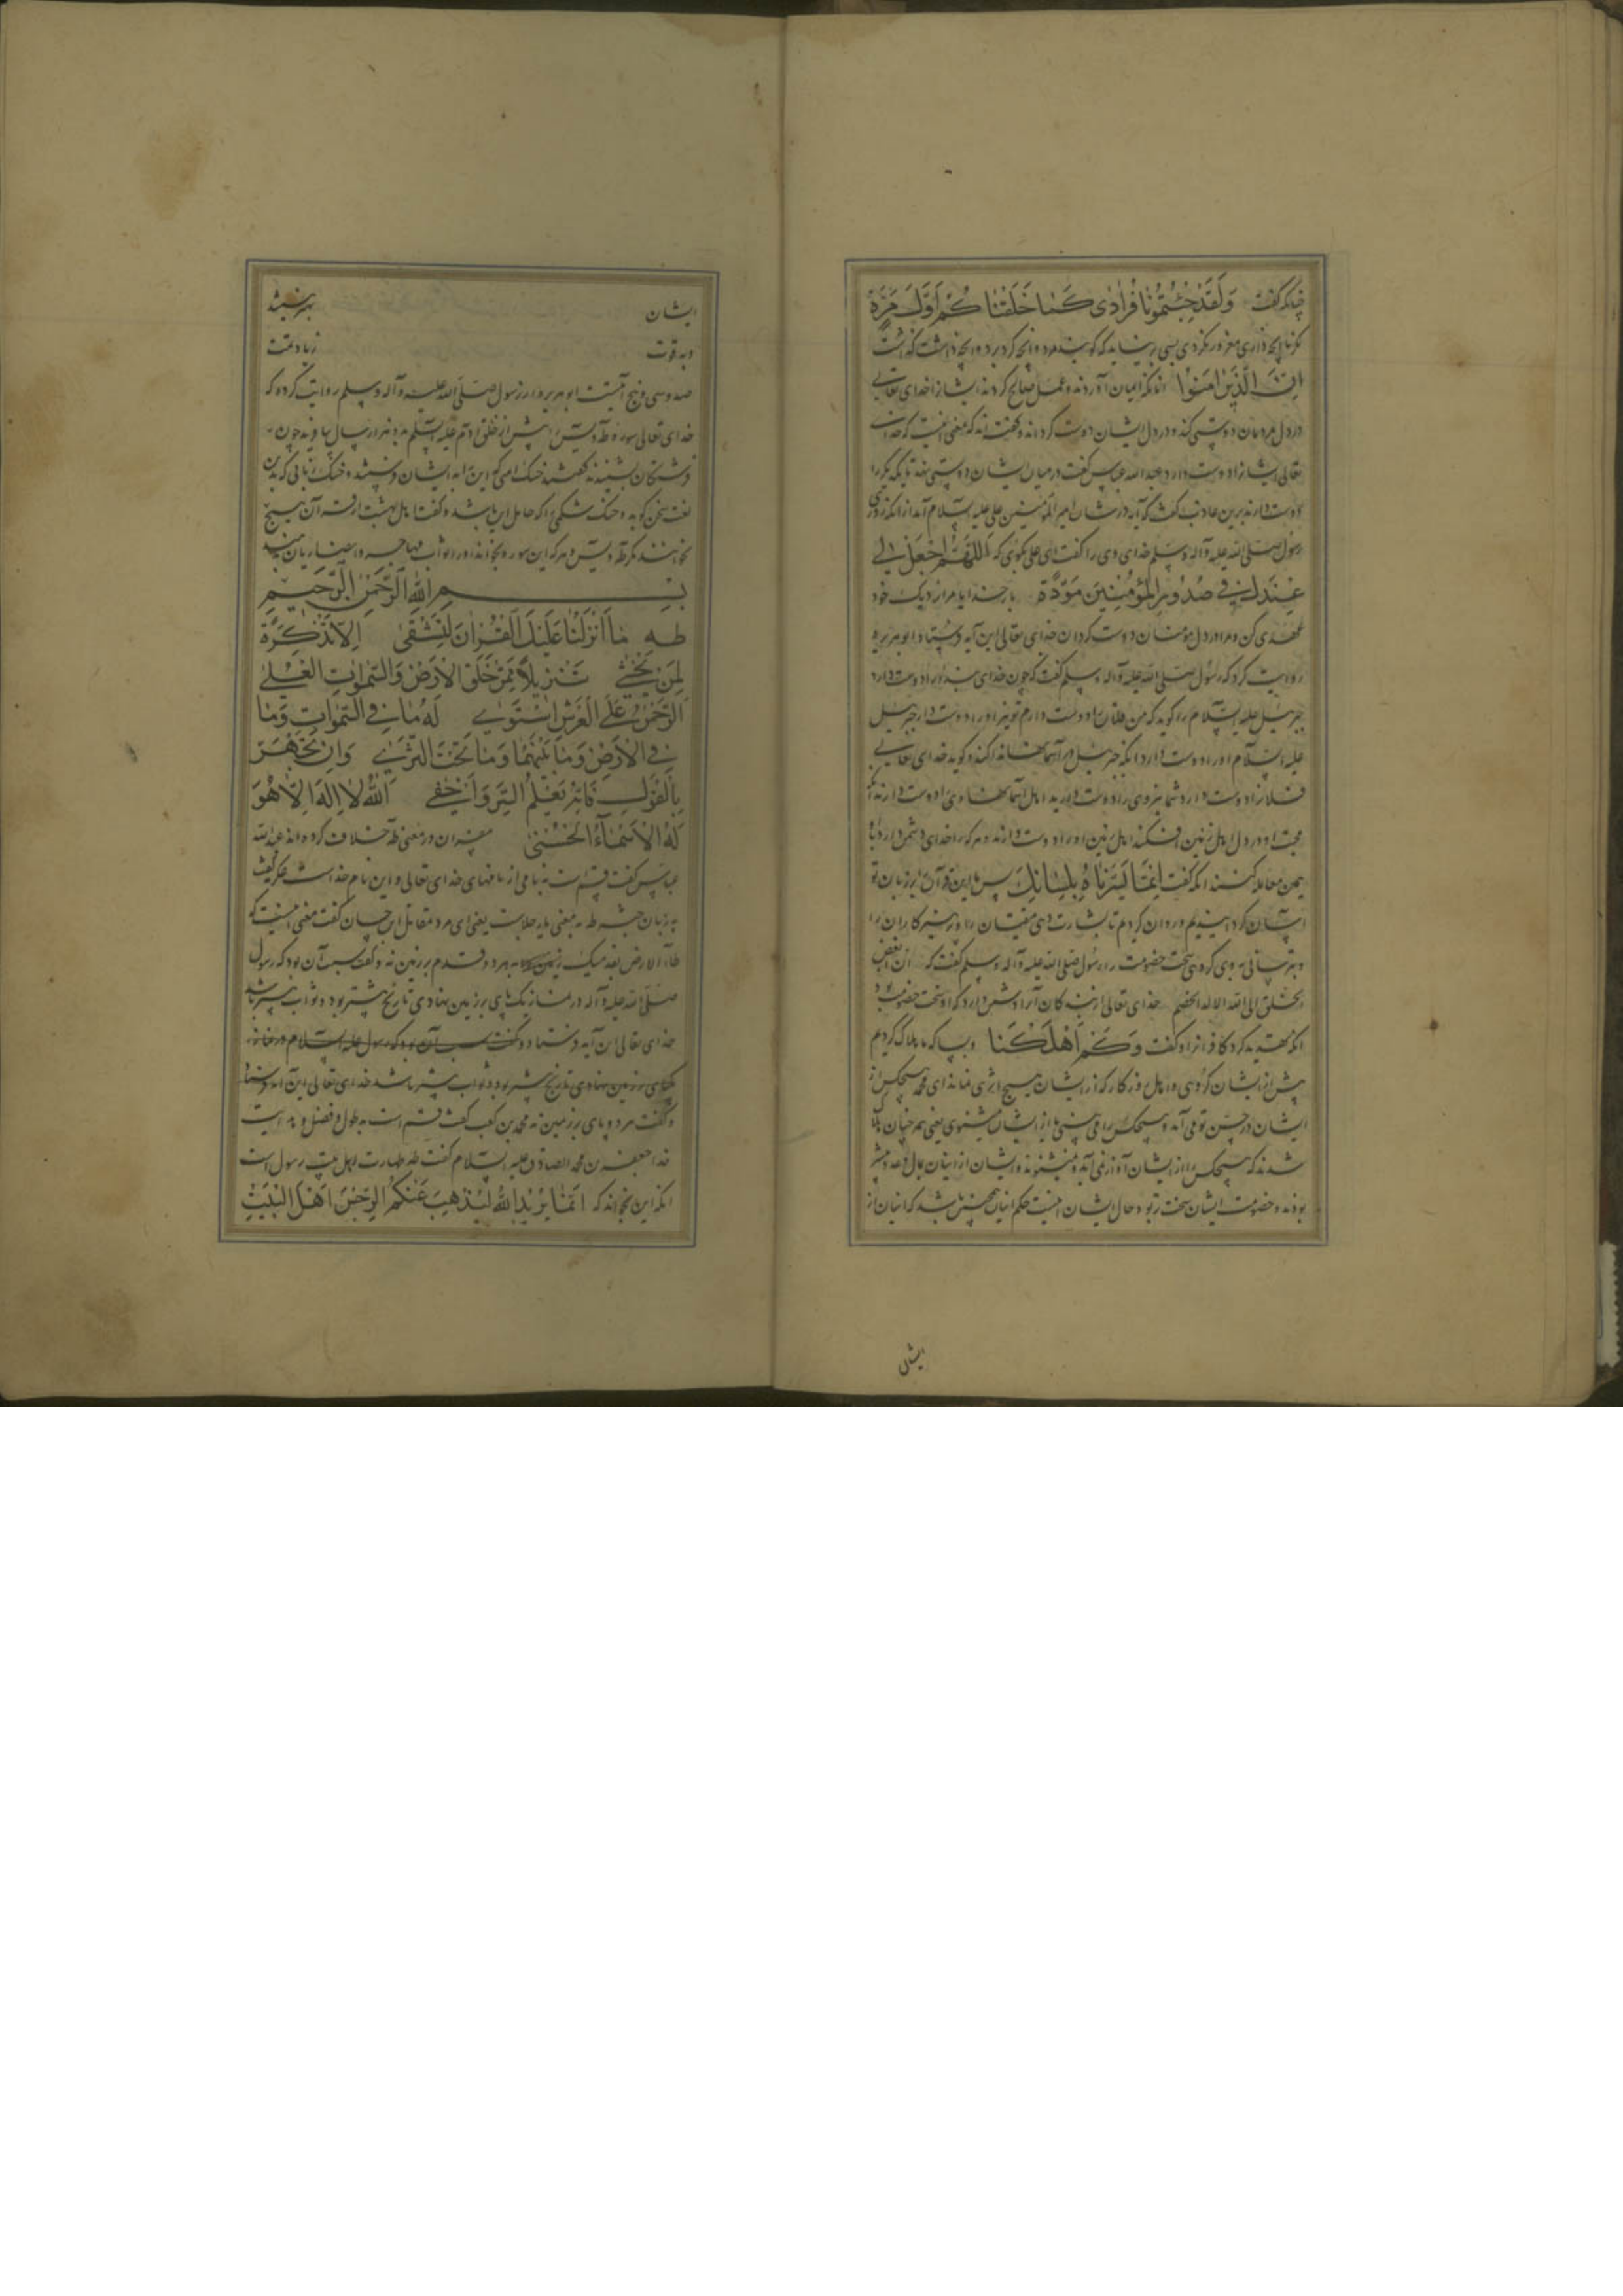 چنانکه گفت وَلَقَدْ جِئْتُمُونَا فُرَادٰی كَمَا خَلَقْنَا كُمْ اَوَّلَ مَرَّةٍ
اِنَّ الَّذینَ اٰمَنُوا آنانکه ایمان آوردند و عمل صالح کردند ایشانرا خدای تعالی
در دل مردمان دوستی کند و در دل ایشان دوست گرداند و گفته‌اند که معنی آنست که خدای
تعالی ایشانرا دوست دارد عبدالله عباس گفت در میان ایشان دوستی نهد تا یکدیگر را
دوست دارند برین عازب گفت که آیه در شان امیر المؤمنین علی علیه السلام آمد از آنکه روزی
رسول صلی الله علیه وآله وسلم خدای وی را گفت ای علی بگوی که اَللّٰهُمَّ اجْعَلْ لی
عِنْدَكَ فی صُدُورِ الْمُؤْمِنینَ مَوَدَّةً بار خدایا مرا نزدیک خود
عهدی کن و مرا در دل مؤمنان دوست گردان خدای تعالی این آیه فرستاد ابو هریره
روایت کرد که رسول صلی الله علیه وآله وسلم گفت که چون خدای بنده را دوست دارد
جبرئیل علیه السلام را گوید که من فلان را دوست دارم تو نیز او را دوست دار جبرئیل
علیه السلام او را دوست دارد آنگه جبرئیل در آسمانها ندا کند و گوید خدای تعالی
فلانرا دوست دارد شما نیز وی را دوست دارید اهل آسمانها وی را دوست دارند آنگه
محبت او در دل اهل زمین افکند اهل زمین او را دوست دارند و هر که را خدای دشمن دارد با او
همین معامله کنند آنگه گفت اِنَّمَا یَسَّرْنَاهُ بِلِسَانِكَ پس ما این قرآن را بر زبان تو
آسان گردانیدیم و روان کردیم تا بشارت دهی متقیان را و پرهیزکاران را
و بترسانی به وی گروهی سخت خصومت را رسول صلی الله علیه وآله وسلم گفت که ان ابغض
الخلق الی الله الالد الخصم خدای تعالی از بندگان آنرا دشمن دارد که او سخت خصومت بود
آنگه تهدید کرد کافرانرا و گفت وَكَمْ اَهْلَكْنَا و بسا که ما هلاک کردیم
پیش از ایشان گروهی و اهل روزگار که از ایشان هیچ اثری نماند ای محمد هیچکس از
شدند که هیچکس را از ایشان آواز نمی آید و نمیشنوند و ایشان از اینان بمال و عدد بیشتر
بودند و خصومت ایشان سخت‌تر بود و حال ایشان اینست حکم اینان همچنین باشد که اینان از
ایشان
ایشان بهتر نیستند
و به قوت زیادت
صد و سی و پنج آیتست ابو هریره از رسول صلی الله علیه وآله وسلم روایت کرده که
خدای تعالی سوره طه و یس را پیش از خلق آدم علیه السلم به دو هزار سال بیافرید چون
فرشتگان بشنیدند گفتند خنک امتی که این را به ایشان فرستند و خنک زبانی که بدین
لغت سخن گوید و خنک شکمی را که حامل این باشد و گفت اهل بهشت از قرآن هیچ
نخوانند مگر طه و یس و هر که این سوره بخواند او را ثواب مهاجر و انصاریان بدهند
بِسْمِ اللّٰهِ الرَّحْمٰنِ الرَّحیمِ
طٰهٰ مَا اَنْزَلْنَا عَلَیْكَ الْقُرْاٰنَ لِتَشْقٰی اِلَّا تَذْكِرَةً
لِمَنْ یَخْشٰی تَنْزیلًا مِمَّنْ خَلَقَ الْاَرْضَ وَالسَّمٰوَاتِ الْعُلٰی
اَلرَّحْمٰنُ عَلَی الْعَرْشِ اسْتَوٰی لَهُ مَا فِی السَّمٰوَاتِ وَمَا
فِی الْاَرْضِ وَمَا بَیْنَهُمَا وَمَا تَحْتَ الثَّرٰی وَاِنْ تَجْهَرْ
بِالْقَوْلِ فَاِنَّهُ یَعْلَمُ السِّرَّ وَاَخْفٰی اَللّٰهُ لَا اِلٰهَ اِلَّا هُوَ
لَهُ الْاَسْمَاءُ الْحُسْنٰی مفسران در معنی طه خلاف کرده‌اند عبدالله
عباس گفت قسم است به نامی از نامهای خدای تعالی و این نام خداست عکرمه گفت
به زبان حبشه طه به معنی یا رجل است یعنی ای مرد مقاتل ابن حیان گفت معنی آنست که
طاء الارض بقدمیک زمین به هر دو قدم بر زمین نه و گفت سبب آن بود که رسول
صلی الله علیه وآله در نماز یک پای بر زمین نهادی تا رنج بیشتر بود و ثواب بیشتر باشد
خدای تعالی این آیه فرستاد و گفت سبب آن بود که رسول علیه السلام در نماز
یکپای بر زمین نهادی تا رنج بیشتر بود و ثواب بیشتر باشد خدای تعالی این آیه فرستاد
و گفت هر دو پای بر زمین نه محمد بن کعب گفت قسم است به طول و فضل و هدایت
خدا جعفر بن محمد الصادق علیه السلام گفت طه طهارت اهل بیت رسول است
آنگه این بخواند که اِنَّمَا یُریدُ اللّٰهُ لِیُذْهِبَ عَنْكُمُ الرِّجْسَ اَهْلَ الْبَیْتِ